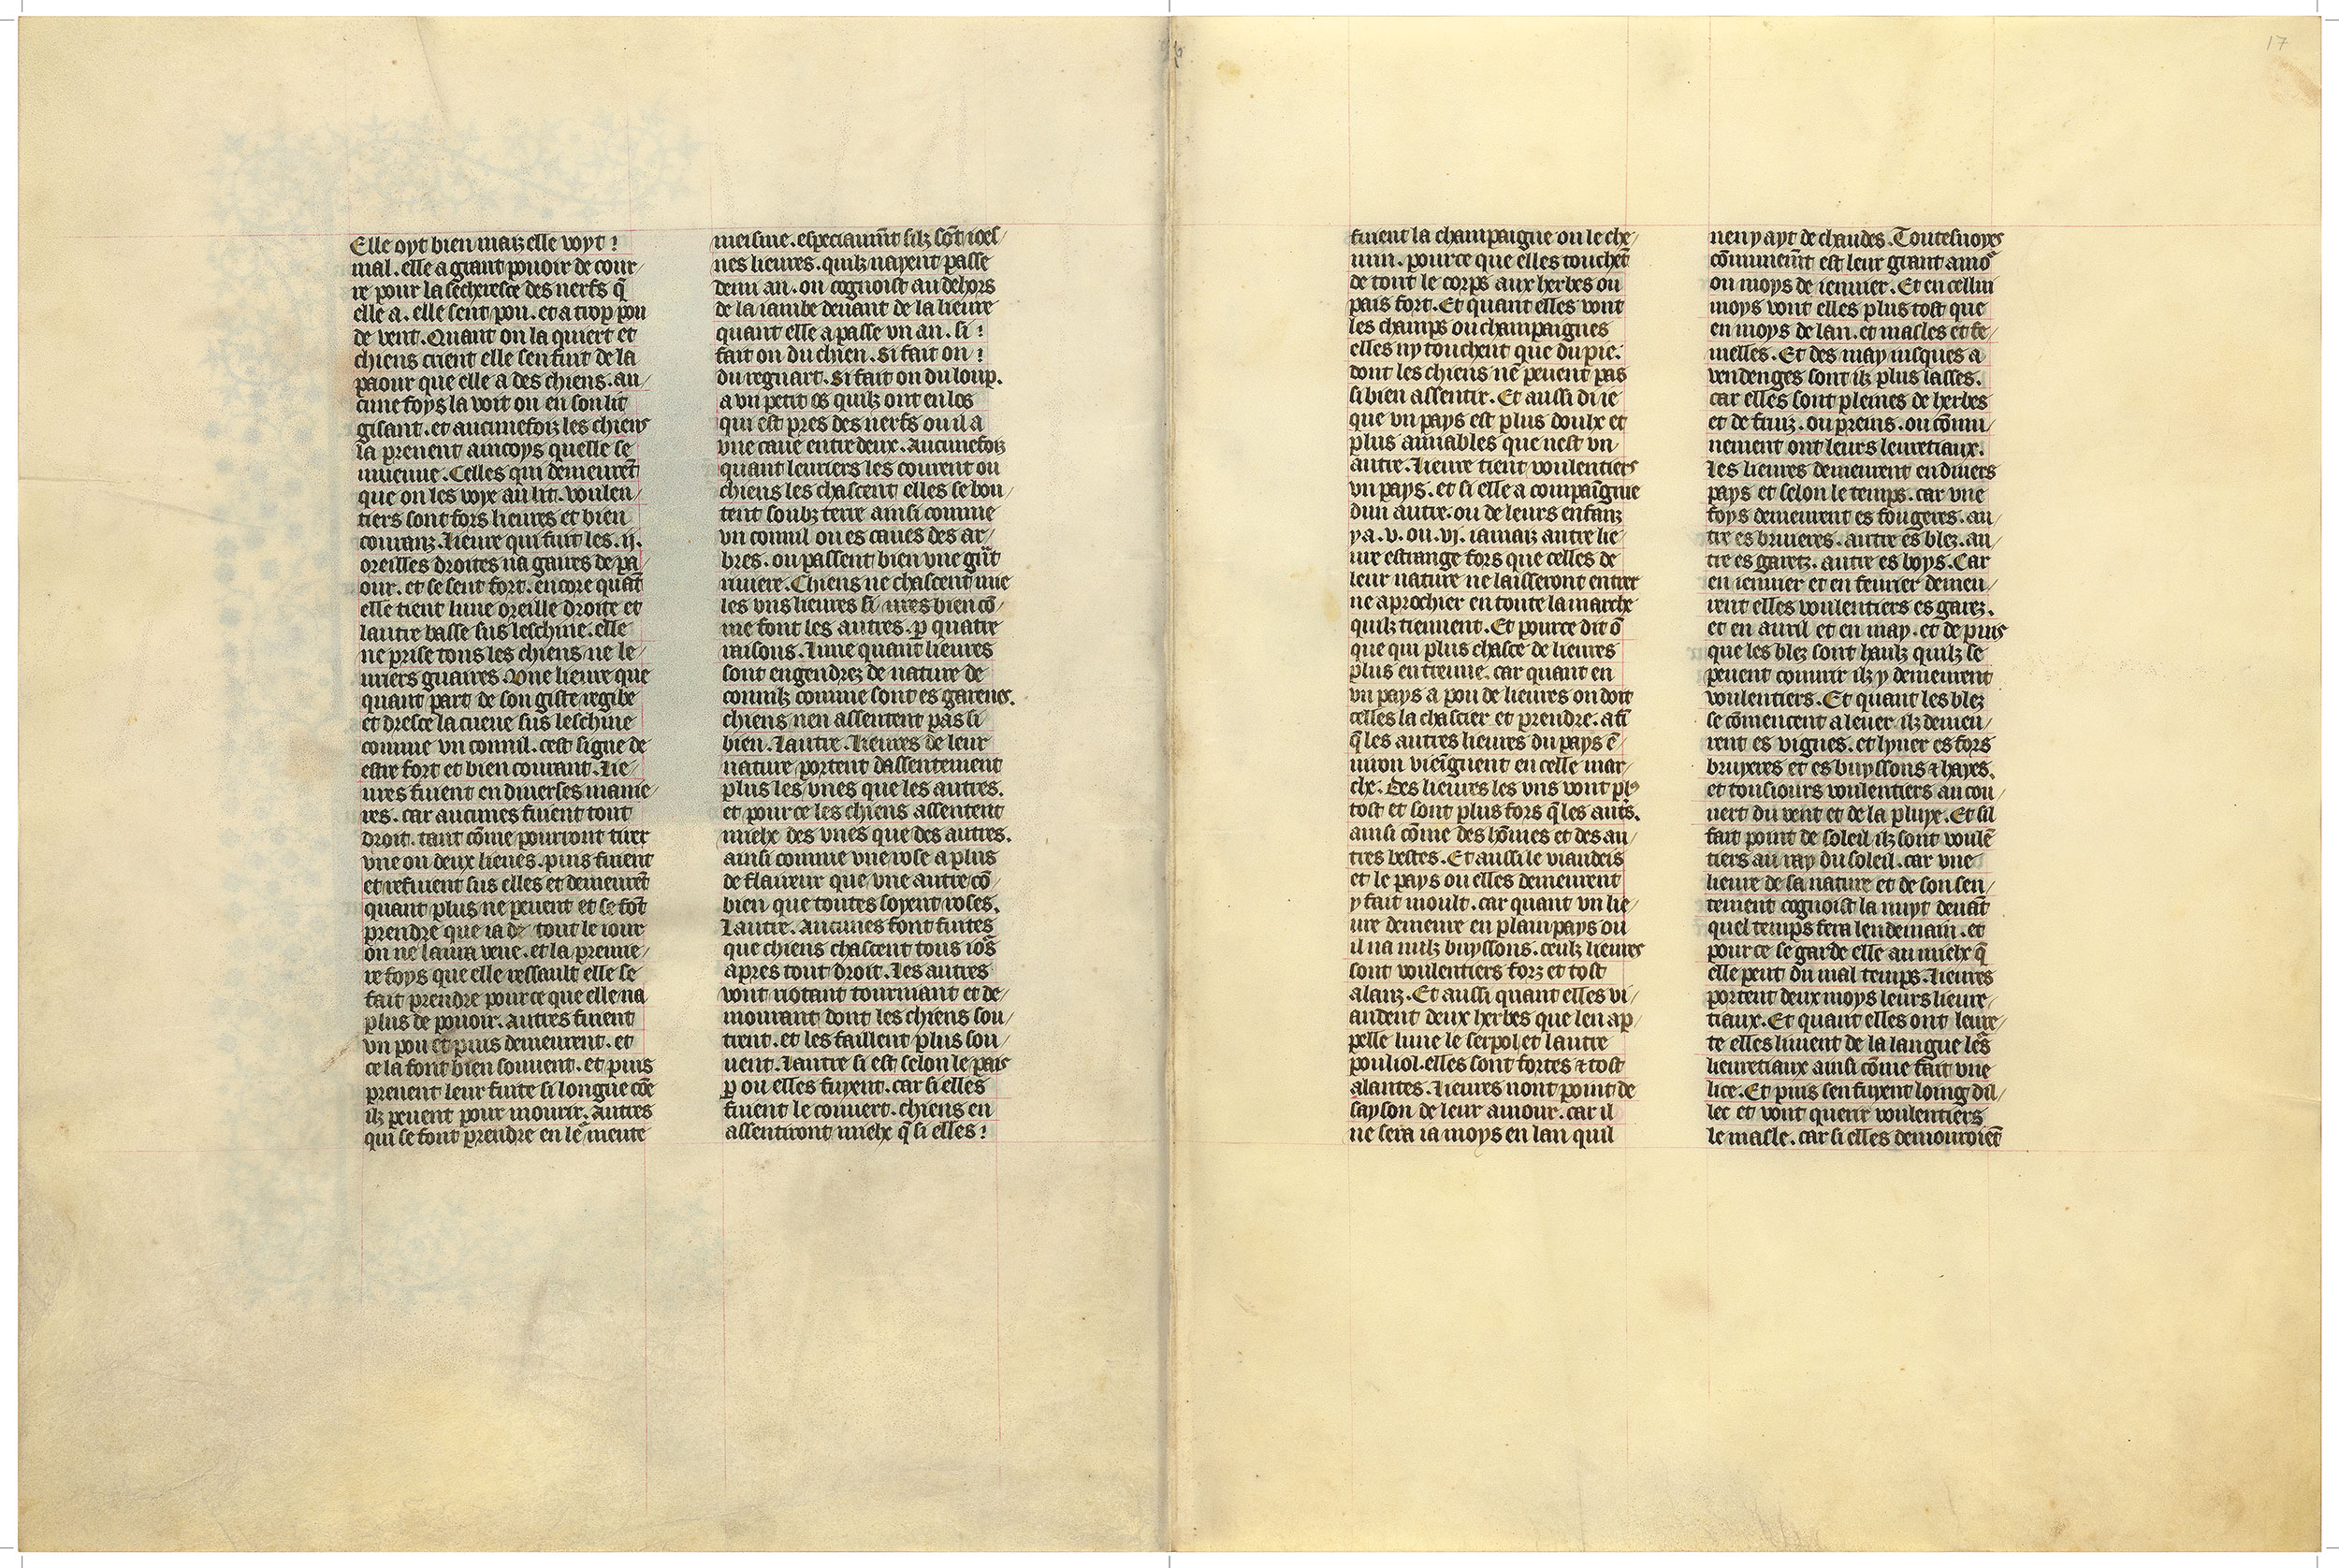 Elle oyt bien maiz elle voyt :
mal. elle a grant pouoir de cour/
re pour la sécheresce des nerfs q̃
elle a. elle sent pou. et a trop pou
de vent. Quant on la quiert et
chiens crient elle sen fuit de la
paour que elle a des chiens. au/
cune foys la voit on en son lit
gisant. et aucunefoiz les chiens
la prenent aincoys quelle se
mueuue. Celles qui demeurẽt
que on les voye au lit. voulen/
tiers sont fors lieures et bien
couranz. Lieure qui fuit les .ij.
oreilles droites na gaires de pa/
our. et se sent fort. encore quãt
elle tient lune oreille droite et
lautre basse sus leschine. elle
ne prise tous les chiens ne le/
uriers guaires. Vne lieure que
quant part de son giste regibe
et dresce la cueue sus leschine
comme vn connil. cest signe de
estre fort et bien courant. Lie/
ures fuient en diuerses manie/
res. car aucunes fuient tout
droit. tant cõme pourront tirer
vne ou deux lieues. puis fuient
et refuient sus elles et demeurẽt
quant plus ne peuent et se fõt
prendre que ia de tout le iour
on ne laura veue. et la premie/
re foys que elle ressault elle se
fait prendre pource que elle na
plus de pouoir. Autres fuient
vn pou et puis demeurent. et
ce la font bien souuent. et puis
prenent leur fuite si longue cõe
ilz peuent pour mourir. Autres
qui se font prendre en le᷑ meute
meisme. especiaumẽt silz sõt ioes/
nes lieures. quilz nayent passe
demi an. on cognoist au dehors
de la iambe deuant de la lieure
quant elle a passe vn an. si :
fait on du chien. Si fait on :
du regnart. Si fait on du loup.
a vn petit os quilz ont en los
qui est pres des nerfs ou il a
vne caue entre deux. Aucunefoiz
quant leuriers les courent ou
chiens les chascent elles se bou/
tent soubz terre ainsi comme
vn connil ou es caues des ar/
bres. ou passent bien vne grãt
riuiere. Chiens ne chascent mie
les vns lieures si ures bien cõ/
me font les autres. p̱ quatre
raisons. Lune quant lieures
sont engendrez de nature de
connilz comme sont es garenes.
chiens nen assentent pas si
bien. Lautre. Lieures de leur
nature portent dassentement
plus les vnes que les autres.
et pour ce les chiens assentent
mielx des vnes que des autres.
ainsi comme vne rose a plus
de flaireur que vne autre cõ/
bien que toutes soyent roses.
Lautre. Aucunes font fuites
que chiens chascent tous iõs
apres tout droit. Les autres
vont riotant tournant et de/
mourant dont les chiens sou/
rient. et les faillent plus sou/
uent. Lautre si est selon le pais
p̱ ou elles fuyent. car si elles
fuient le couuert. chiens en
assentiront mielx q̃ si elles :
fuient la champaigne ou le che/
min. pource que elles touchẽt
de tout le corps aux herbes ou
pais fort. Et quant elles vont
les champs ou champaignes
elles ny touchent que du pie.
dont les chiens ne peuent pas
si bien assentir. Et aussi di ie
que vn pays est plus doulx et
plus amiables que nest vn
autre. Lieure tient voulentiers
vn pays. et si elle a compaĩgnie
dun autre. ou de leurs enfanz
ya. v. ou. vj. iamaiz autre lie/
ure estrange fors que celles de
leur nature ne laisseront entrer
ne aprochier en toute la marche
quilz tiennent. Et pource dit õ
que qui plus chasce de lieures
plus en treuue. car quant en
vn pays a pou de lieures on doit
celles la chascier et prendre. afĩ
q̃ les autres lieures du pays ẽ/
uiron viẽgnent en celle mar/
che. Des lieures les vns vont plꝰ
tost et sont plus fors q̃ les aut᷑s.
ainsi cõme des hõmes et des au/
tres bestes. Et aussi le viandeis
et le pays ou elles demeurent
y fait moult. car quant vn lie/
ure demeure en plain pays ou
il na nulz buyssons. ceulz lieures
sont voulentiers forz et tost
alanz. Et aussi quant elles vi/
andent deux herbes que len ap/
pelle lune le serpol et lautre
pouliol. elles sont fortes ⁊ tost
alantes. Lieures nont point de
sayson de leur amour. car il
ne sera ia moys en lan quil
nen y ayt de chaudes. Toutesuoyes
cõmunemẽt est leur grant amõ
ou moys de ienuier. Et en cellui
moys vont elles plus tost que
en moys de lan. et masles et fe/
melles. Et des may iusques a
vendenges sont ilz plus lasses.
car elles sont pleines de herbes
et de fruiz. ou preins. ou cõmu/
nement ont leurs leuretiaux.
Les lieures demeurent en diuers
pays et selon le temps. car vne
foys demeurent es fougeres. au/
tre es bruieres. autre es blez. au/
tre es garetz. autre es boys. Car
en ienuier et en feurier demeu/
rent elles voulentiers es garez.
et en auril et en may. et de puis
que les blez sont haulz quilz se
peuent couurir ilz y demeurent
voulentiers. Et quant les blez
se cõmencent a leuer. ilz demeu/
rent es vignes. et lyuer es fors
bruyeres et es buyssons ⁊ hayes.
et tousiours voulentiers au cou/
uert du vent et de la pluye. Et sil
fait point de soleil ilz sont voulẽ
tiers au ray du soleil. car vne
lieure de sa nature et de son sen/
tement cognoist la nuyt deuãt
quel temps fera lendemain. et
pour ce se garde elle au mielx q̃
elle peut du mal temps. Lieures
portent deux moys leurs lieure/
tiaux. Et quant elles ont leure/
te elles liuent de la langue les
lieuretiaux ainsi cõme fait vne
lice. Et puis sen fuyent loing dil/
lec et vont querir voulentiers
le masle. car si elles demouroiẽt
17